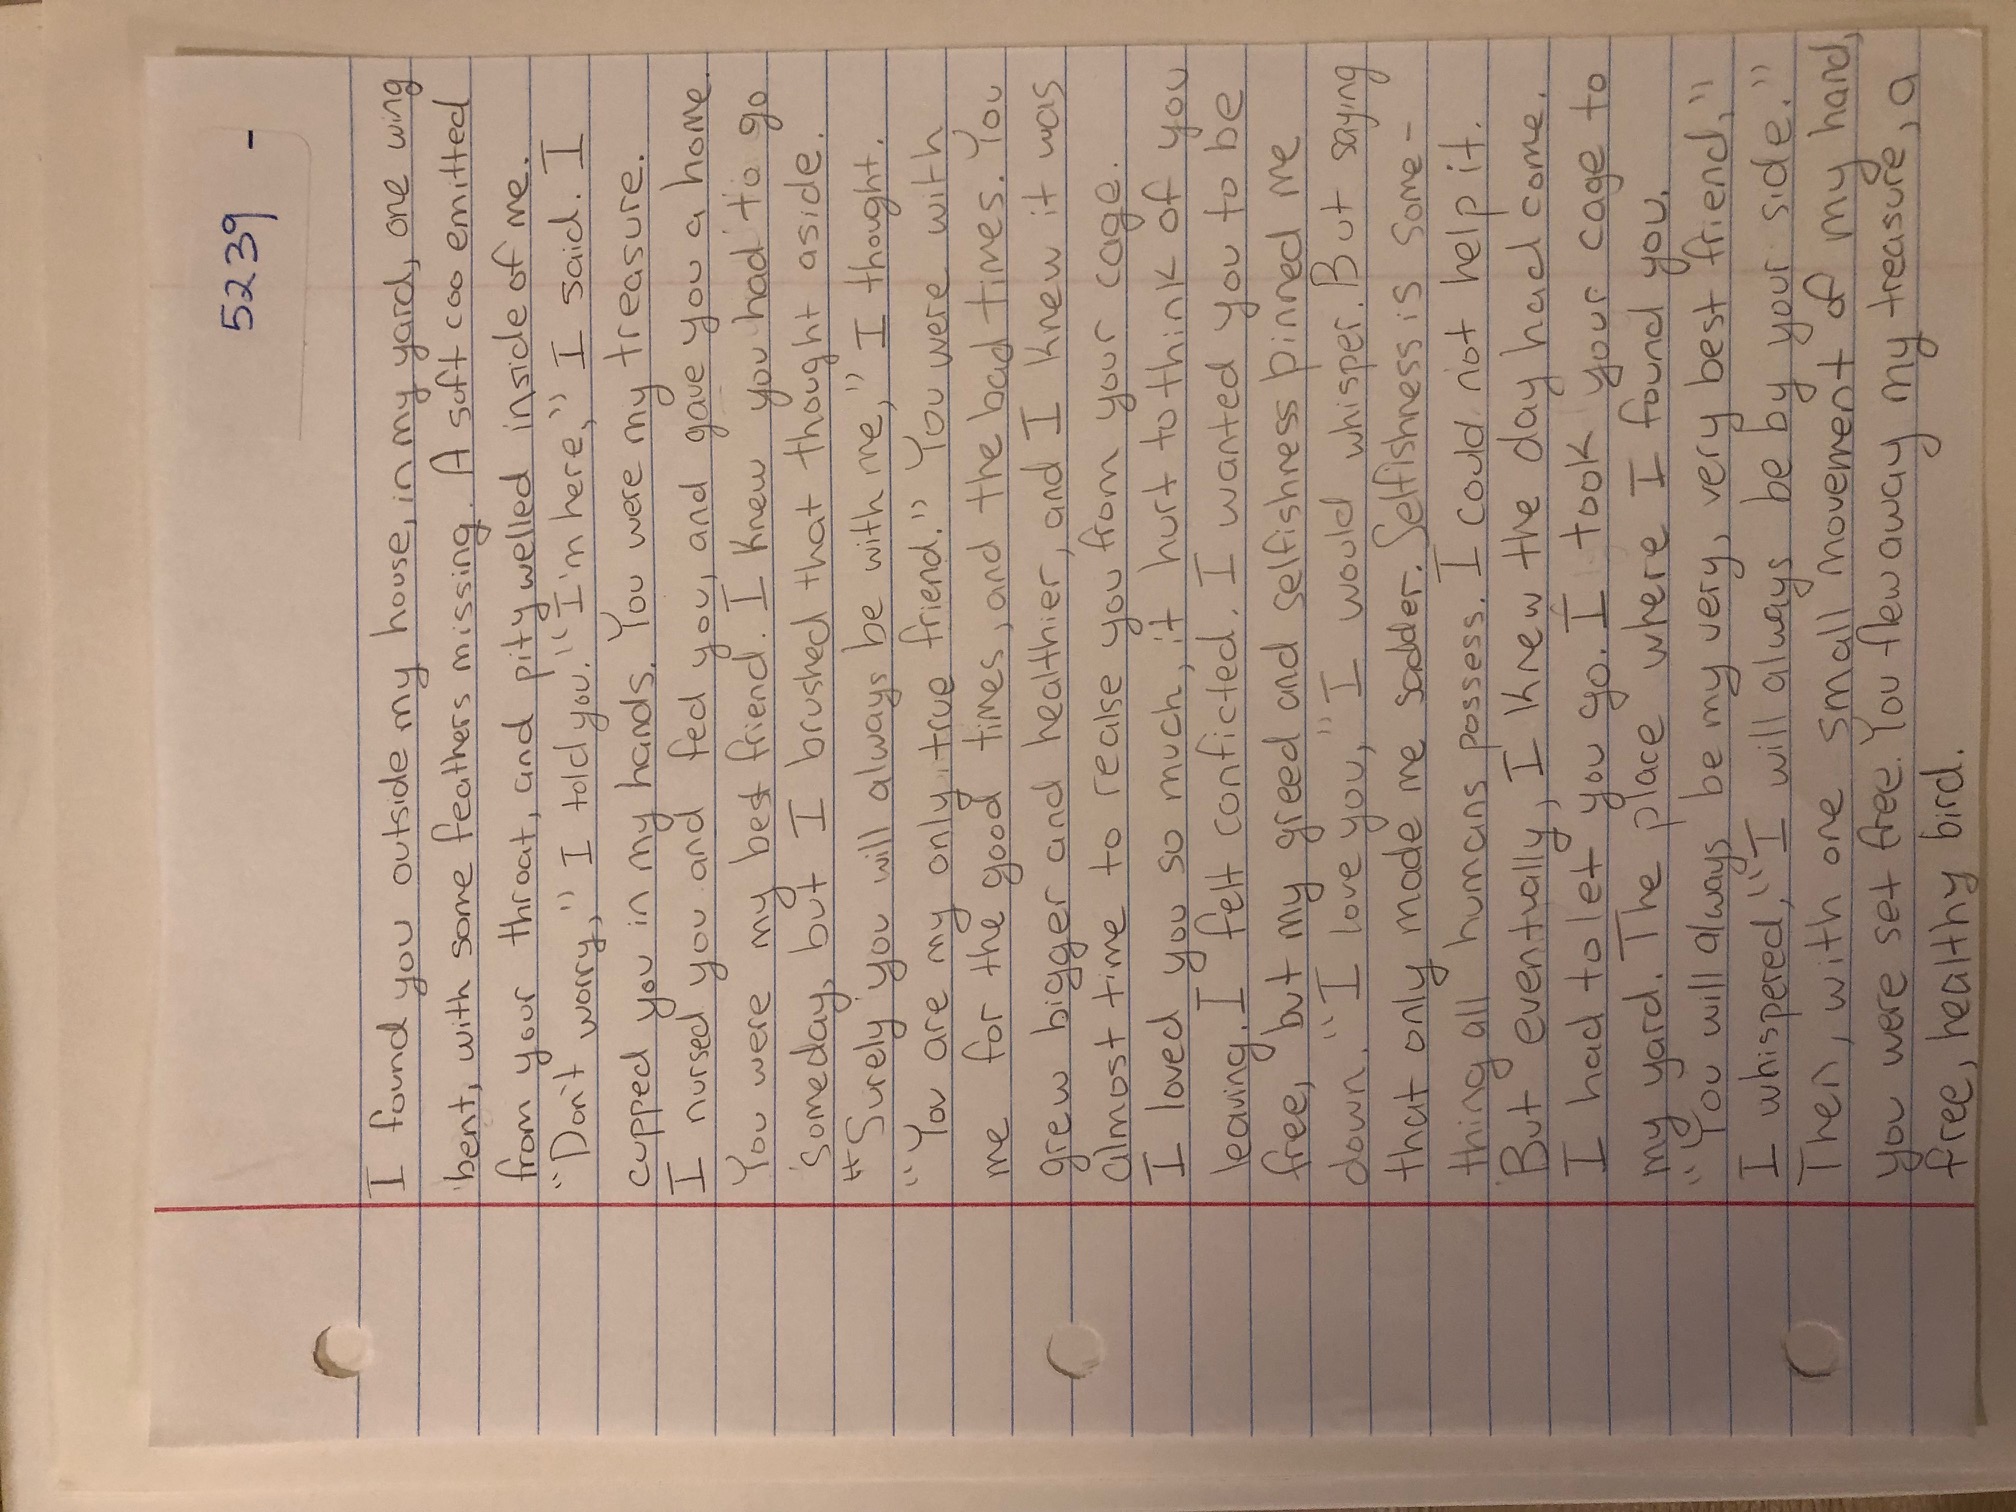 5239 -
I found you outside my house, in my yard, one wing
bent, with some feathers missing. A soft coo emitted
from your throat, and pity welled inside of me.
"Don't worry," I told you. "I'm here," I said. I
cupped you in my hands. You were my treasure.
I nursed you and fed you, and gave you a home.
You were my best friend. I knew you had to go
someday, but I brushed that thought aside.
"Surely you will always be with me," I thought.
"You are my only true friend." You were with
me for the good times, and the bad times. You
grew bigger and healthier, and I knew it was
almost time to realse you from your cage.
I loved you so much, it hurt to think of you
leaving. I felt conficted. I wanted you to be
free, but my greed and selfishness pinned me
down. "I love you," I would whisper. But saying
that only made me sadder. Selfishness is some-
thing all humans possess. I could not help it.
But eventually, I knew the day had come.
I had to let you go. I took your cage to
my yard. The place where I found you.
"You will always be my very, very best friend,"
I whispered, "I will always be by your side."
Then, with one small movement of my hand,
you were set free. You flew away my treasure, a
free, healthy bird.